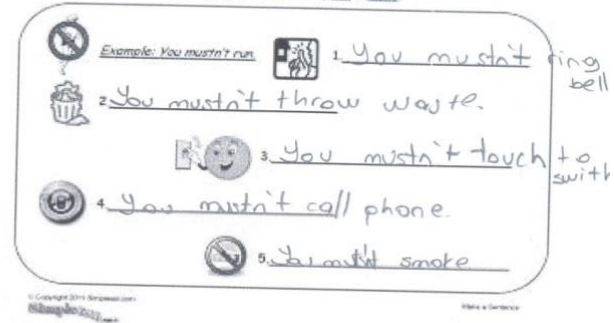 Example: You mustn't run.
1. You mustn't ring
bell
2. You mustn't throw waste.
3. You mustn't touch to
swith
4. You mustn't call phone.
5. You mustn't smoke
© Copyright 2011 Simpleesl.com
Make a Sentence